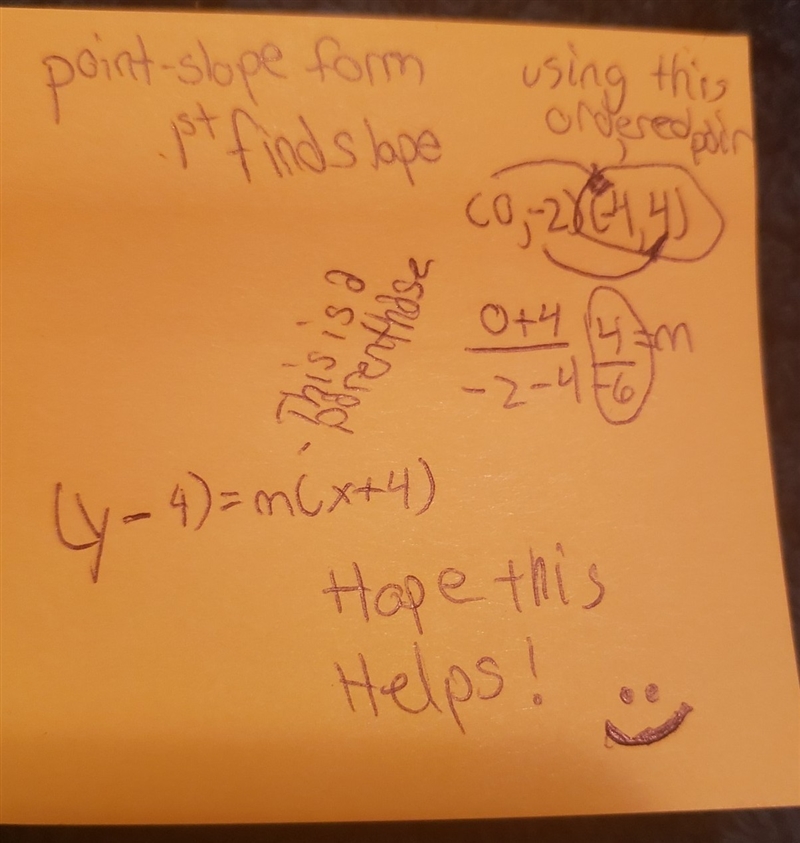 point-slope form
1st find slope
using this
ordered pair
(0,-2)(-4,4)
0+4 4 =m
-2-4 -6
This is a
parenthase
(y-4)=m(x+4)
Hope this
Helps!